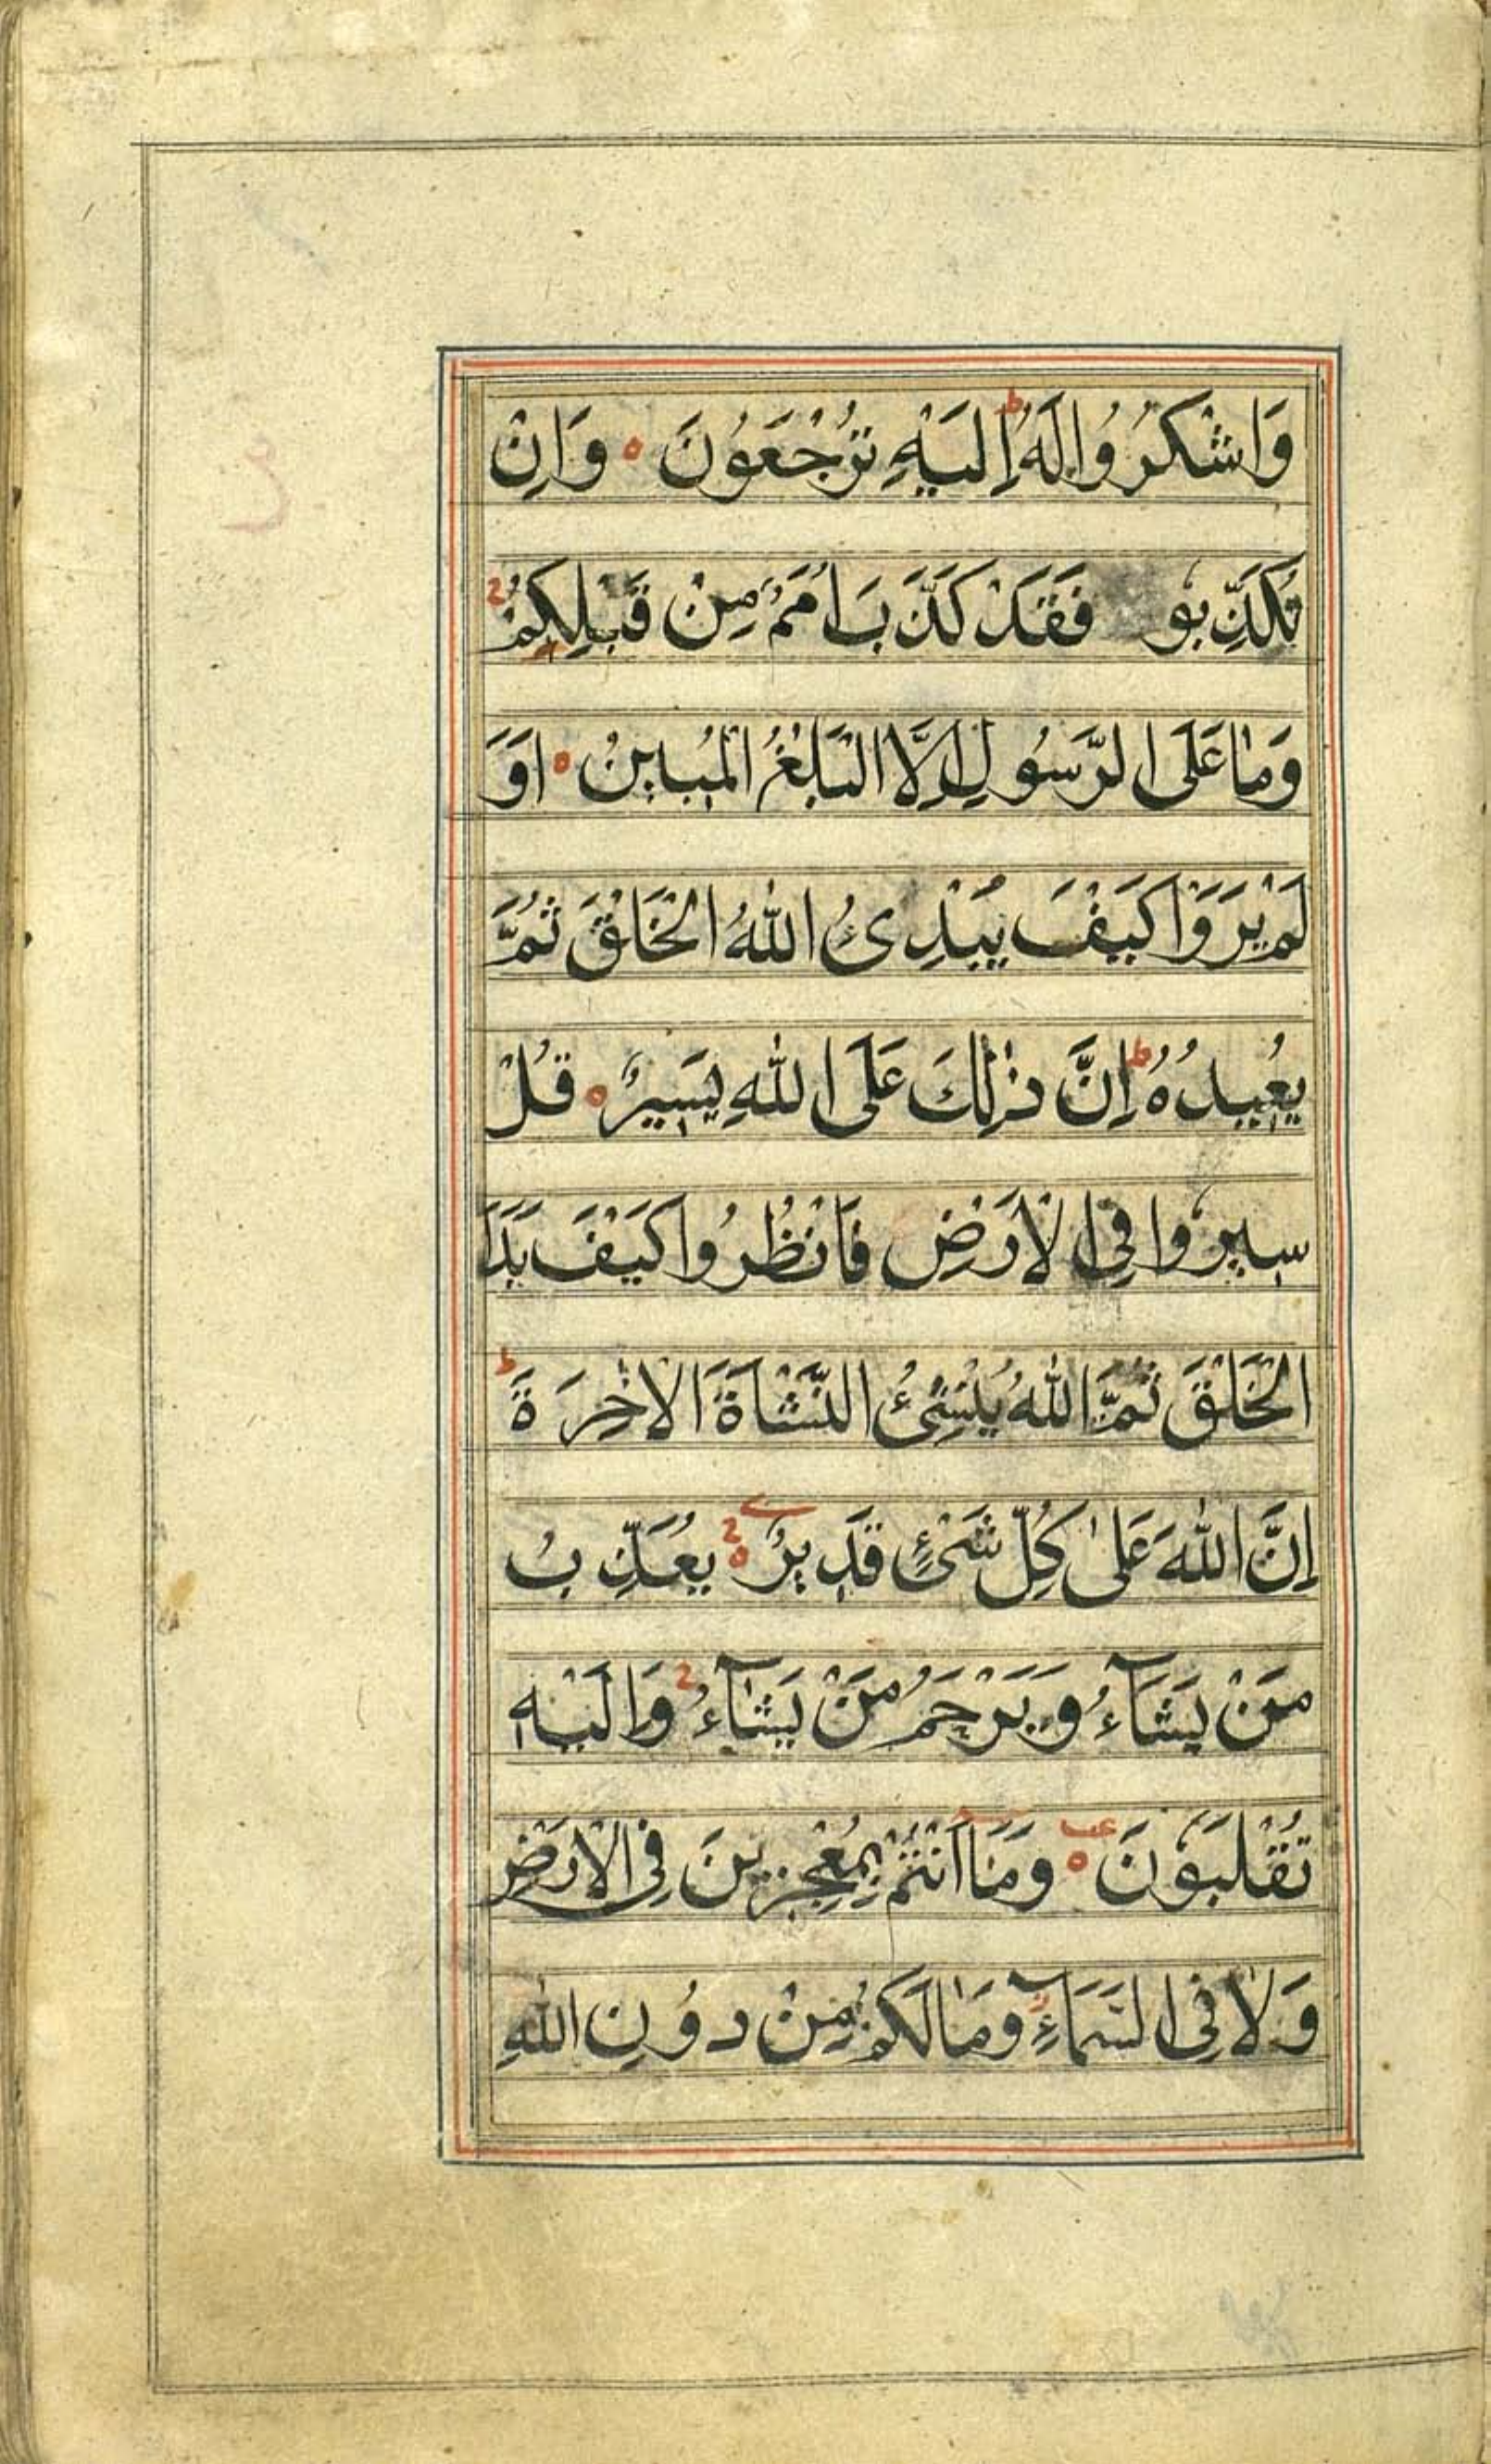 وَاشْكُرُوا لَهُ ؕ اِلَيْهِ تُرْجَعُوْنَ ۝ وَاِنْ
تُكَذِّبُو فَقَدْ كَذَّبَ اُمَمٌ مِنْ قَبْلِكُمْ
وَمَا عَلَى الرَّسُوْلِ اِلَّا الْبَلٰغُ الْمُبِيْنُ ۝ اَوَ
لَمْ يَرَوْا كَيْفَ يُبْدِئُ اللّٰهُ الْخَلْقَ ثُمَّ
يُعِيْدُهُ ؕ اِنَّ ذٰلِكَ عَلَى اللّٰهِ يَسِيْرٌ ۝ قُلْ
سِيْرُوْا فِى الْاَرْضِ فَانْظُرُوْا كَيْفَ بَدَاَ
الْخَلْقَ ثُمَّ اللّٰهُ يُنْشِئُ النَّشْاَةَ الْاٰخِرَةَ ؕ
اِنَّ اللّٰهَ عَلٰى كُلِّ شَىْءٍ قَدِيْرٌ ۝ يُعَذِّبُ
مَنْ يَشَآءُ وَيَرْحَمُ مَنْ يَشَآءُ وَاِلَيْهِ
تُقْلَبُوْنَ ۝ وَمَا اَنْتُمْ بِمُعْجِزِيْنَ فِى الْاَرْضِ
وَلَا فِى السَّمَآءِ وَمَا لَكُمْ مِنْ دُوْنِ اللّٰهِ